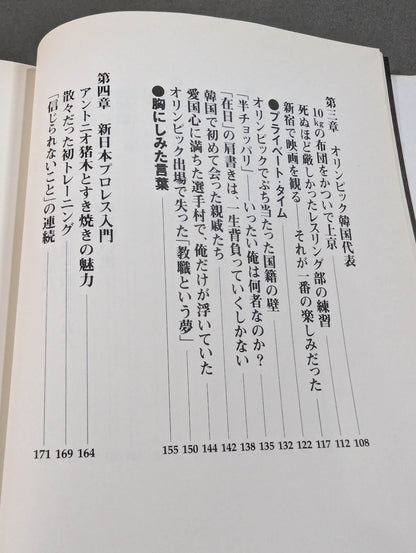 第三章 オリンピック韓国代表
10kgの布団をかついで上京 108
死ぬほど厳しかったレスリング部の練習 112
新宿で映画を観る――それが一番の楽しみだった 117
●プライベート・タイム 122
オリンピックでぶち当たった国籍の壁 132
「半チョッパリ」――いったい俺は何者なのか？ 135
「在日」の肩書きは、一生背負っていくしかない 138
韓国で初めて会った親戚たち 142
愛国心に満ちた選手村で、俺だけが浮いていた 144
オリンピック出場で失った「教職という夢」 150
●胸にしみた言葉 155
第四章 新日本プロレス入門
アントニオ猪木とすき焼きの魅力 164
散々だった初トレーニング 169
「信じられないこと」の連続 171